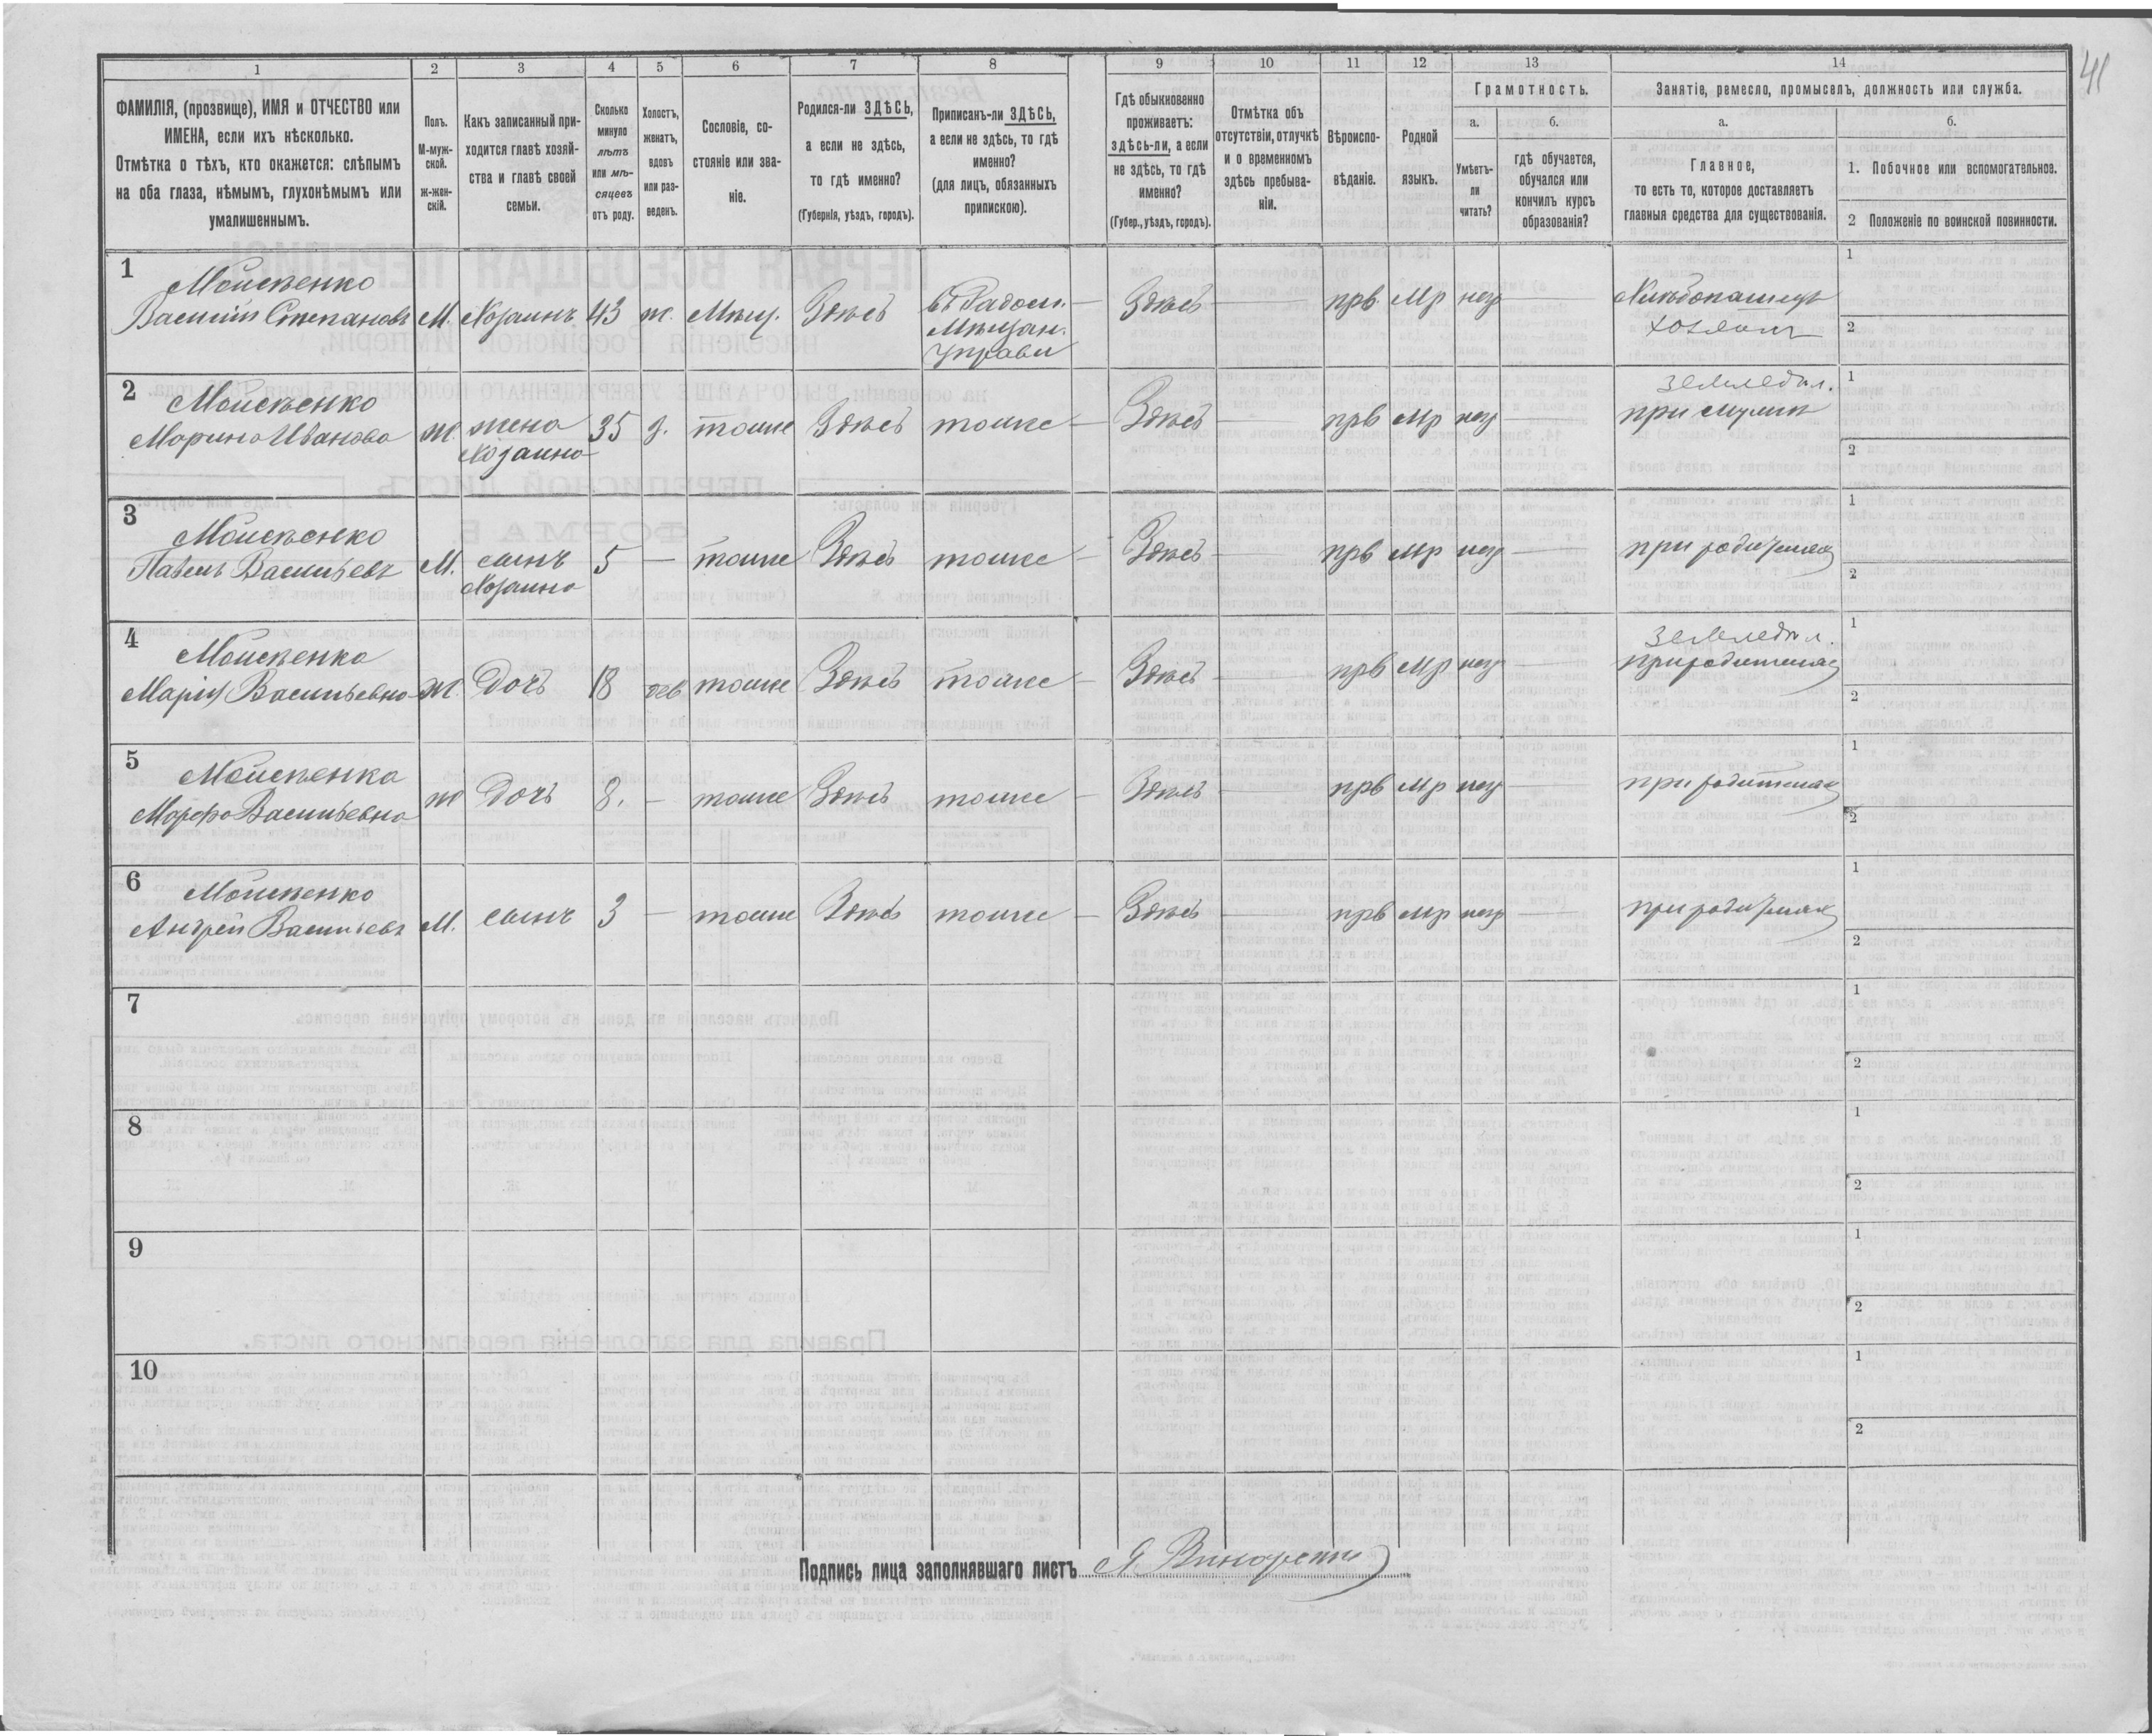 41
1 2 3 4 5 6 7 8 9 10 11 12 13 14
ФАМИЛІЯ, (прозвище), ИМЯ и ОТЧЕСТВО или
ИМЕНА, если ихъ нѣсколько.
Отмѣтка о тѣхъ, кто окажется: слѣпымъ
на оба глаза, нѣмымъ, глухонѣмымъ или
умалишеннымъ.
Полъ.
М-муж-
ской.
ж-жен-
скій.
Какъ записанный при-
ходится главѣ хозяй-
ства и главѣ своей
семьи.
Сколько
минуло
лѣтъ
или мѣ-
сяцевъ
отъ роду.
Холостъ,
женатъ,
вдовъ
или раз-
веденъ.
Сословіе, со-
стояніе или зва-
ніе.
Родился-ли ЗДѢСЬ,
а если не здѣсь,
то гдѣ именно?
(Губернія, уѣздъ, городъ).
Приписанъ-ли ЗДѢСЬ,
а если не здѣсь, то гдѣ
именно?
(для лицъ, обязанныхъ
припискою).
Гдѣ обыкновенно
проживаетъ:
здѣсь-ли, а если
не здѣсь, то гдѣ
именно?
(Губер., уѣздъ, городъ).
Отмѣтка объ
отсутствіи, отлучкѣ
и о временномъ
здѣсь пребыва-
ніи.
Вѣроиспо-
вѣданіе.
Родной
языкъ.
Грамотность.
а.
Умѣетъ-
ли
читать?
б.
гдѣ обучается,
обучался или
кончилъ курсъ
образованія?
Занятіе, ремесло, промыселъ, должность или служба.
а.
Главное,
то есть то, которое доставляетъ
главныя средства для существованія.
б.
1. Побочное или вспомогательное.
2 Положеніе по воинской повинности.
1
Мойсѣенко
Василій Степановъ М. Хозаинъ 43 ж. Мѣщ. Здѣсь
въ Радом.
Мѣщан.
Управи
— Здѣсь — прв. Мр нег —
Хлѣбопашецъ
хозяинъ
1
2
2
Мойсѣенко
Марина Иванова ж.
жена
Хозаина
35 з. тоже Здѣсь тоже — Здѣсь — прв Мр нег —
земледѣл.
при мужѣ
1
2
3
Мойсѣенко
Павелъ Васильевъ М.
сынъ
Хозаина
5 — тоже Здѣсь тоже — Здѣсь — прв Мр нег —
при родителях
1
2
4
Мойсѣенко
Марія Васильевна ж. Дочь 18 дев тоже Здѣсь тоже — Здѣсь — прв Мр нег —
земледѣл.
при родителях
1
2
5
Мойсѣенка
Марфа Васильевна ж Дочь 8. — тоже Здѣсь тоже — Здѣсь — прв Мр нег —
при родителях
1
2
6
Мойсѣенко
Андрей Васильевъ М. сынъ 3 — тоже Здѣсь тоже — Здѣсь — прв Мр нег —
при родителях
1
2
7
1
2
8
1
2
9
1
2
10
1
2
Подпись лица заполнявшаго листъ